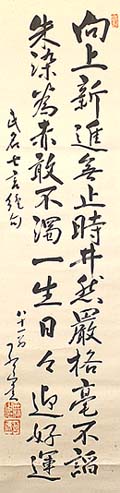 向上新進無止時井然嚴格毫不諂
朱染為赤敢不濁一生日々迎好運
氏名七言絶句
八十一翁